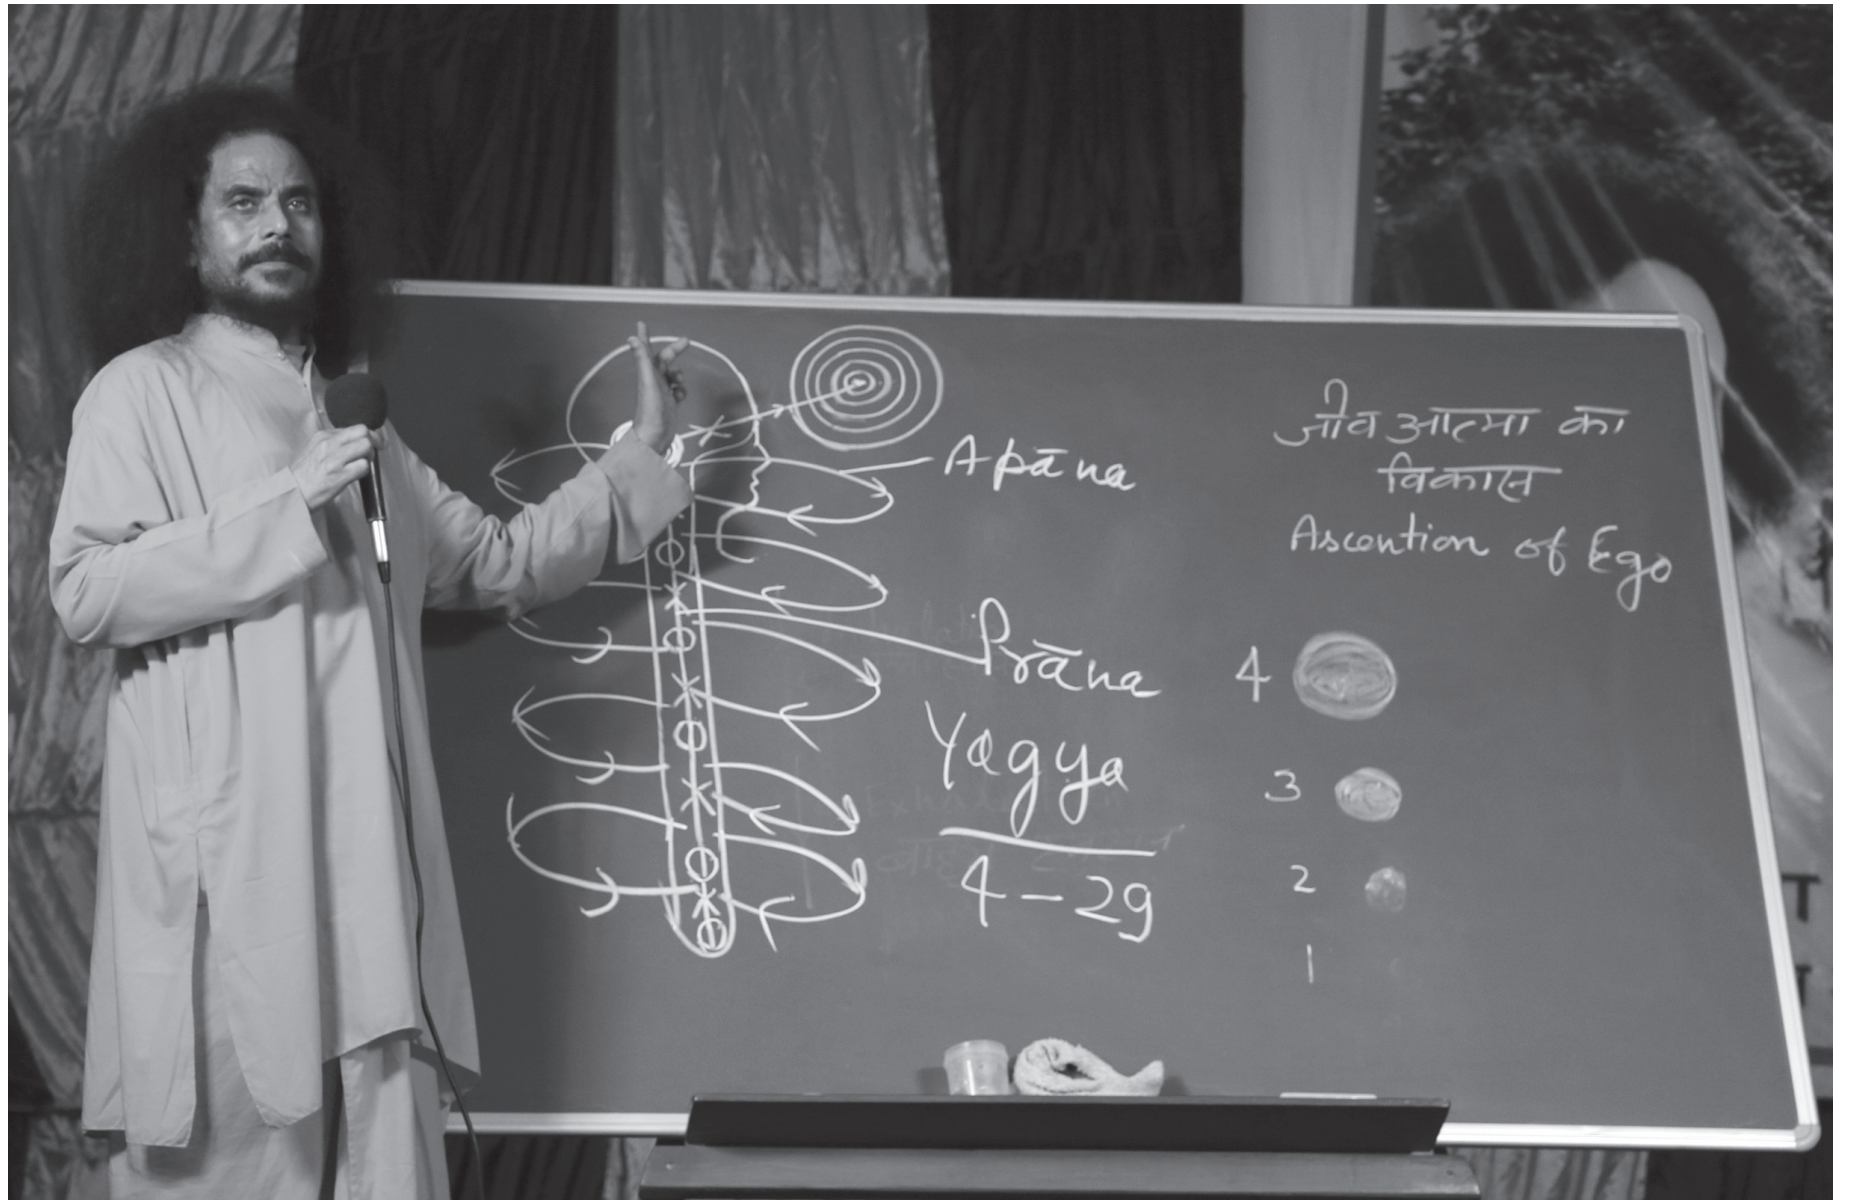 Apāna
Prāna
Yagya
4-29
जीव आत्मा का
विकास
Ascention of Ego
4
3
2
1